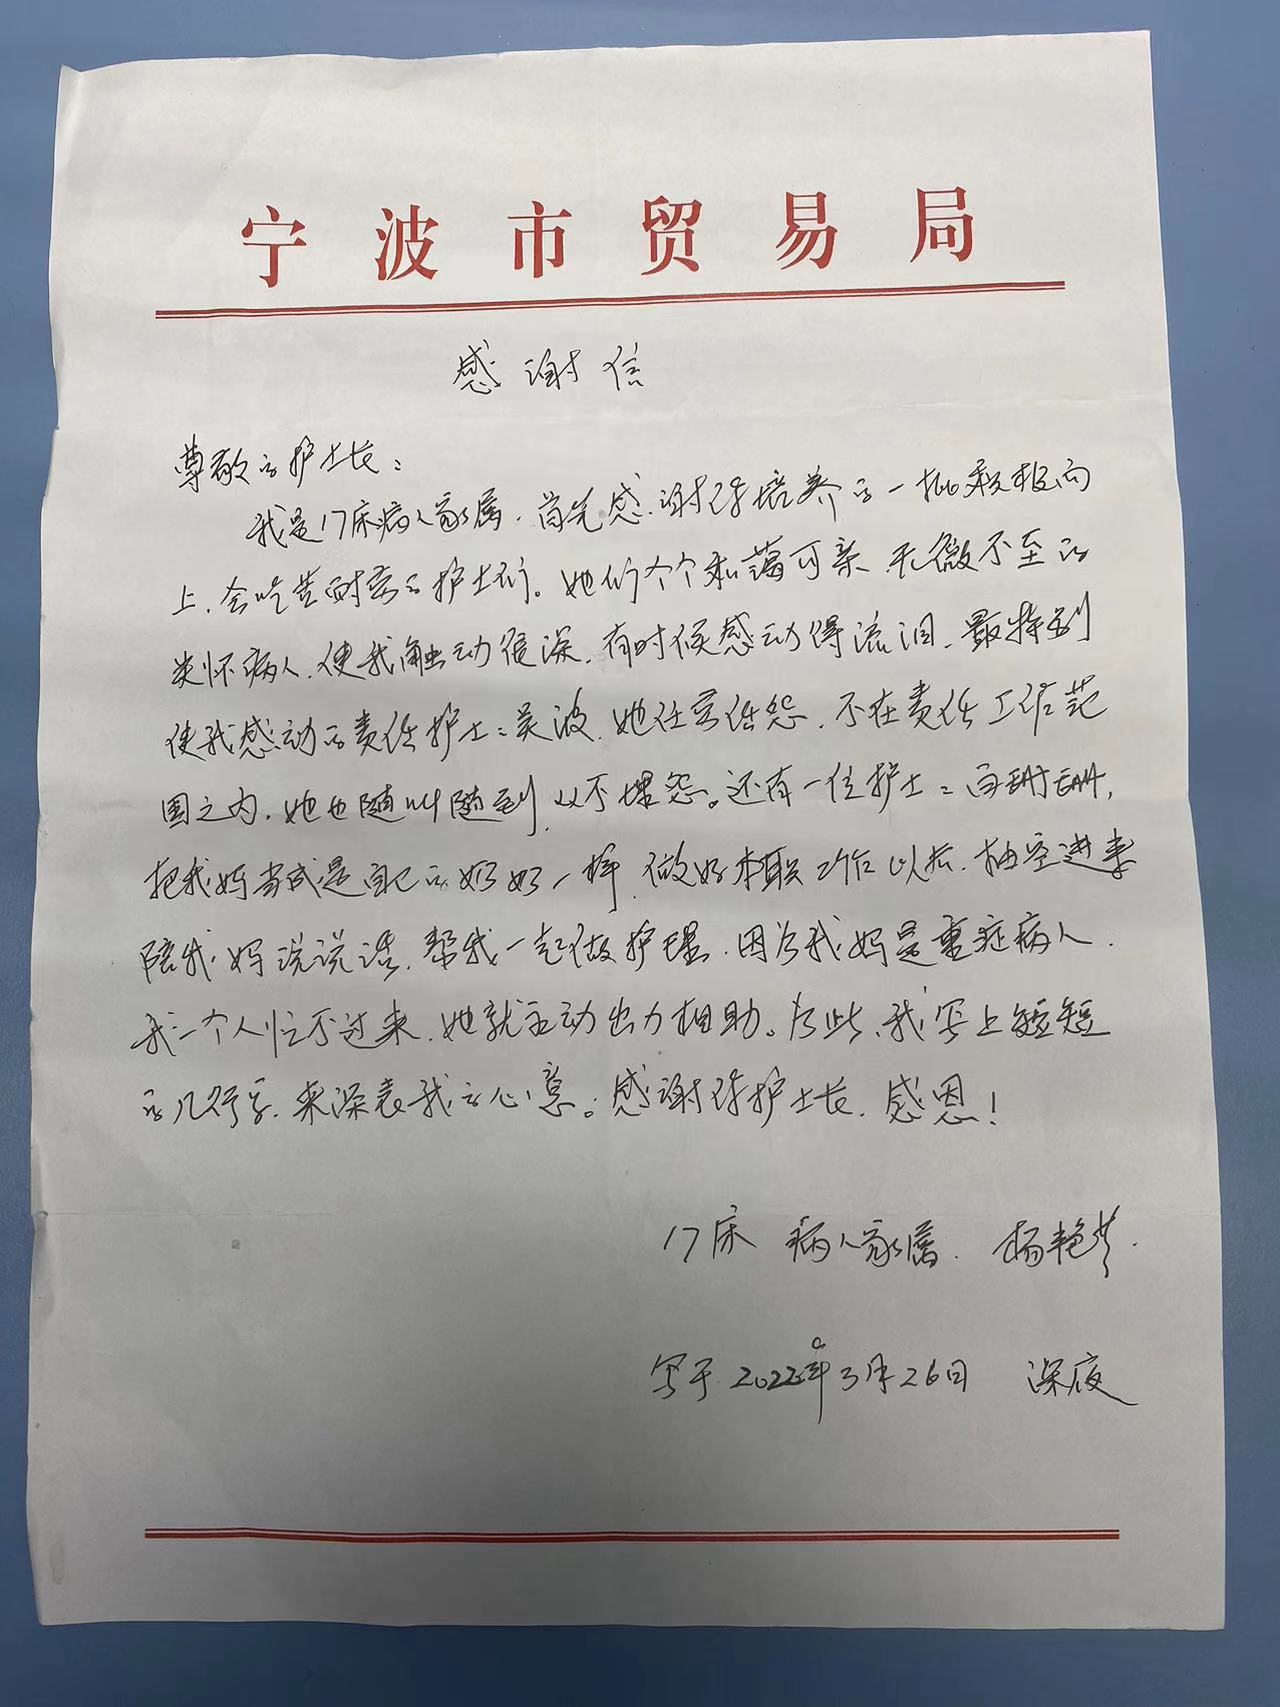 宁波市贸易局
感谢信
尊敬的护士长：
我是17床病人家属，首先感谢你培养的一批积极向
上，会吃苦耐劳的护士们。她们个个和蔼可亲，无微不至的
关怀病人，使我触动很深，有时候感动得流泪，最特别
使我感动的责任护士：吴波，她任劳任怨，不在责任工作范
围之内，她也随叫随到，从不埋怨。还有一位护士：
把我妈当成是自己的奶奶一样，做好本职工作以后，抽空进来
陪我妈说说话，帮我一起做护理，因为我妈是重症病人，
我一个人忙不过来，她就主动出力相助。为此，我写上短短
的几行字，来深表我的心意。感谢你护士长，感恩！
17床 病人家属，杨艳
写于2022年3月26日 深夜